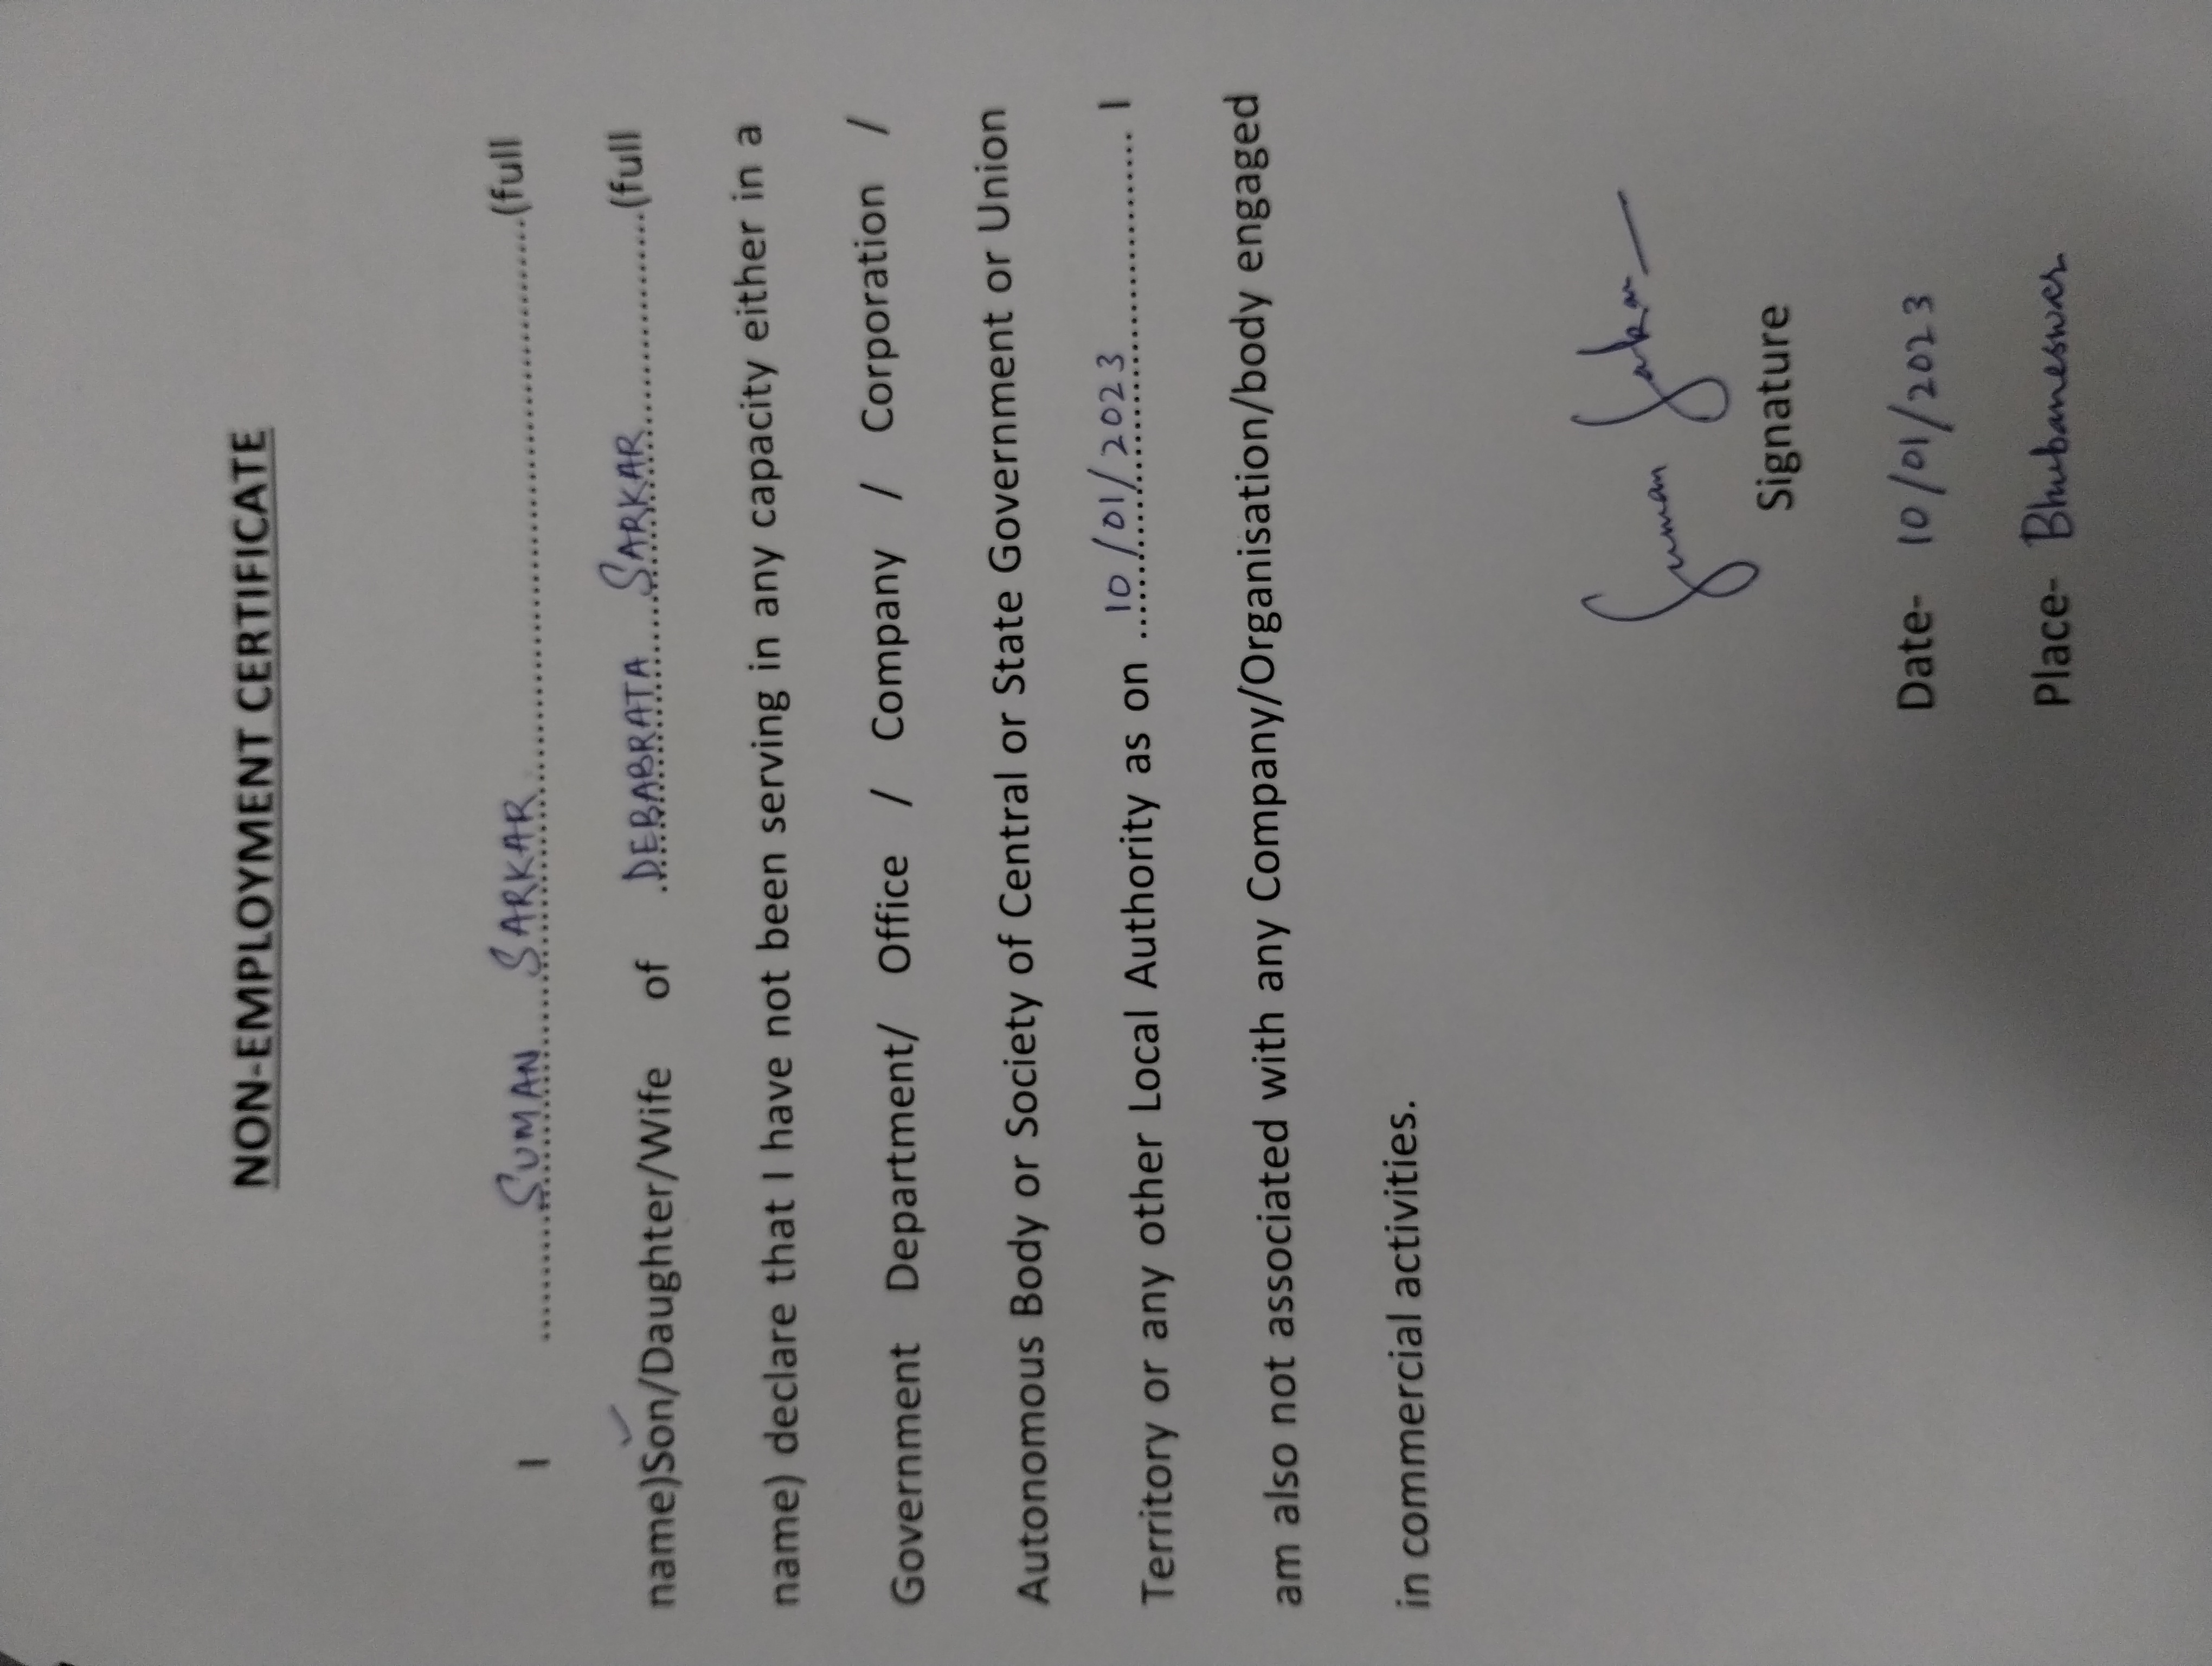 NON-EMPLOYMENT CERTIFICATE
I ..........SUMAN SARKAR..........(full
name)Son/Daughter/Wife of ..DEBABRATA SARKAR..........(full
name) declare that I have not been serving in any capacity either in a
Government Department/ Office / Company / Corporation /
Autonomous Body or Society of Central or State Government or Union
Territory or any other Local Authority as on ..10/01/2023.......... I
am also not associated with any Company/Organisation/body engaged
in commercial activities.
Suman Sarkar
Signature
Date- 10/01/2023
Place- Bhubaneswar